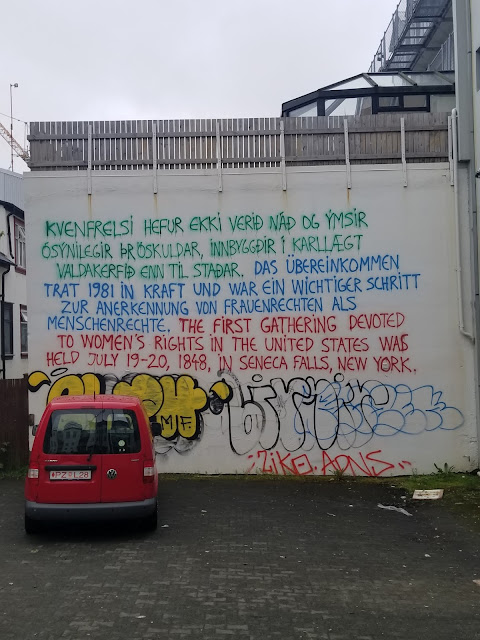 KVENFRELSI HEFUR EKKI VERIÐ NÁÐ OG ÝMSIR
ÓSÝNILEGIR ÞRÖSKULDAR, INNBYGGÐIR Í KARLLÆGT
VALDAKERFIÐ ENN TIL STAÐAR. DAS ÜBEREINKOMMEN
TRAT 1981 IN KRAFT UND WAR EIN WICHTIGER SCHRITT
ZUR ANERKENNUNG VON FRAUENRECHTEN ALS
MENSCHENRECHTE. THE FIRST GATHERING DEVOTED
TO WOMEN'S RIGHTS IN THE UNITED STATES WAS
HELD JULY 19-20, 1848, IN SENECA FALLS, NEW YORK.
MF.
ZIKO. ADNS
PZ L28